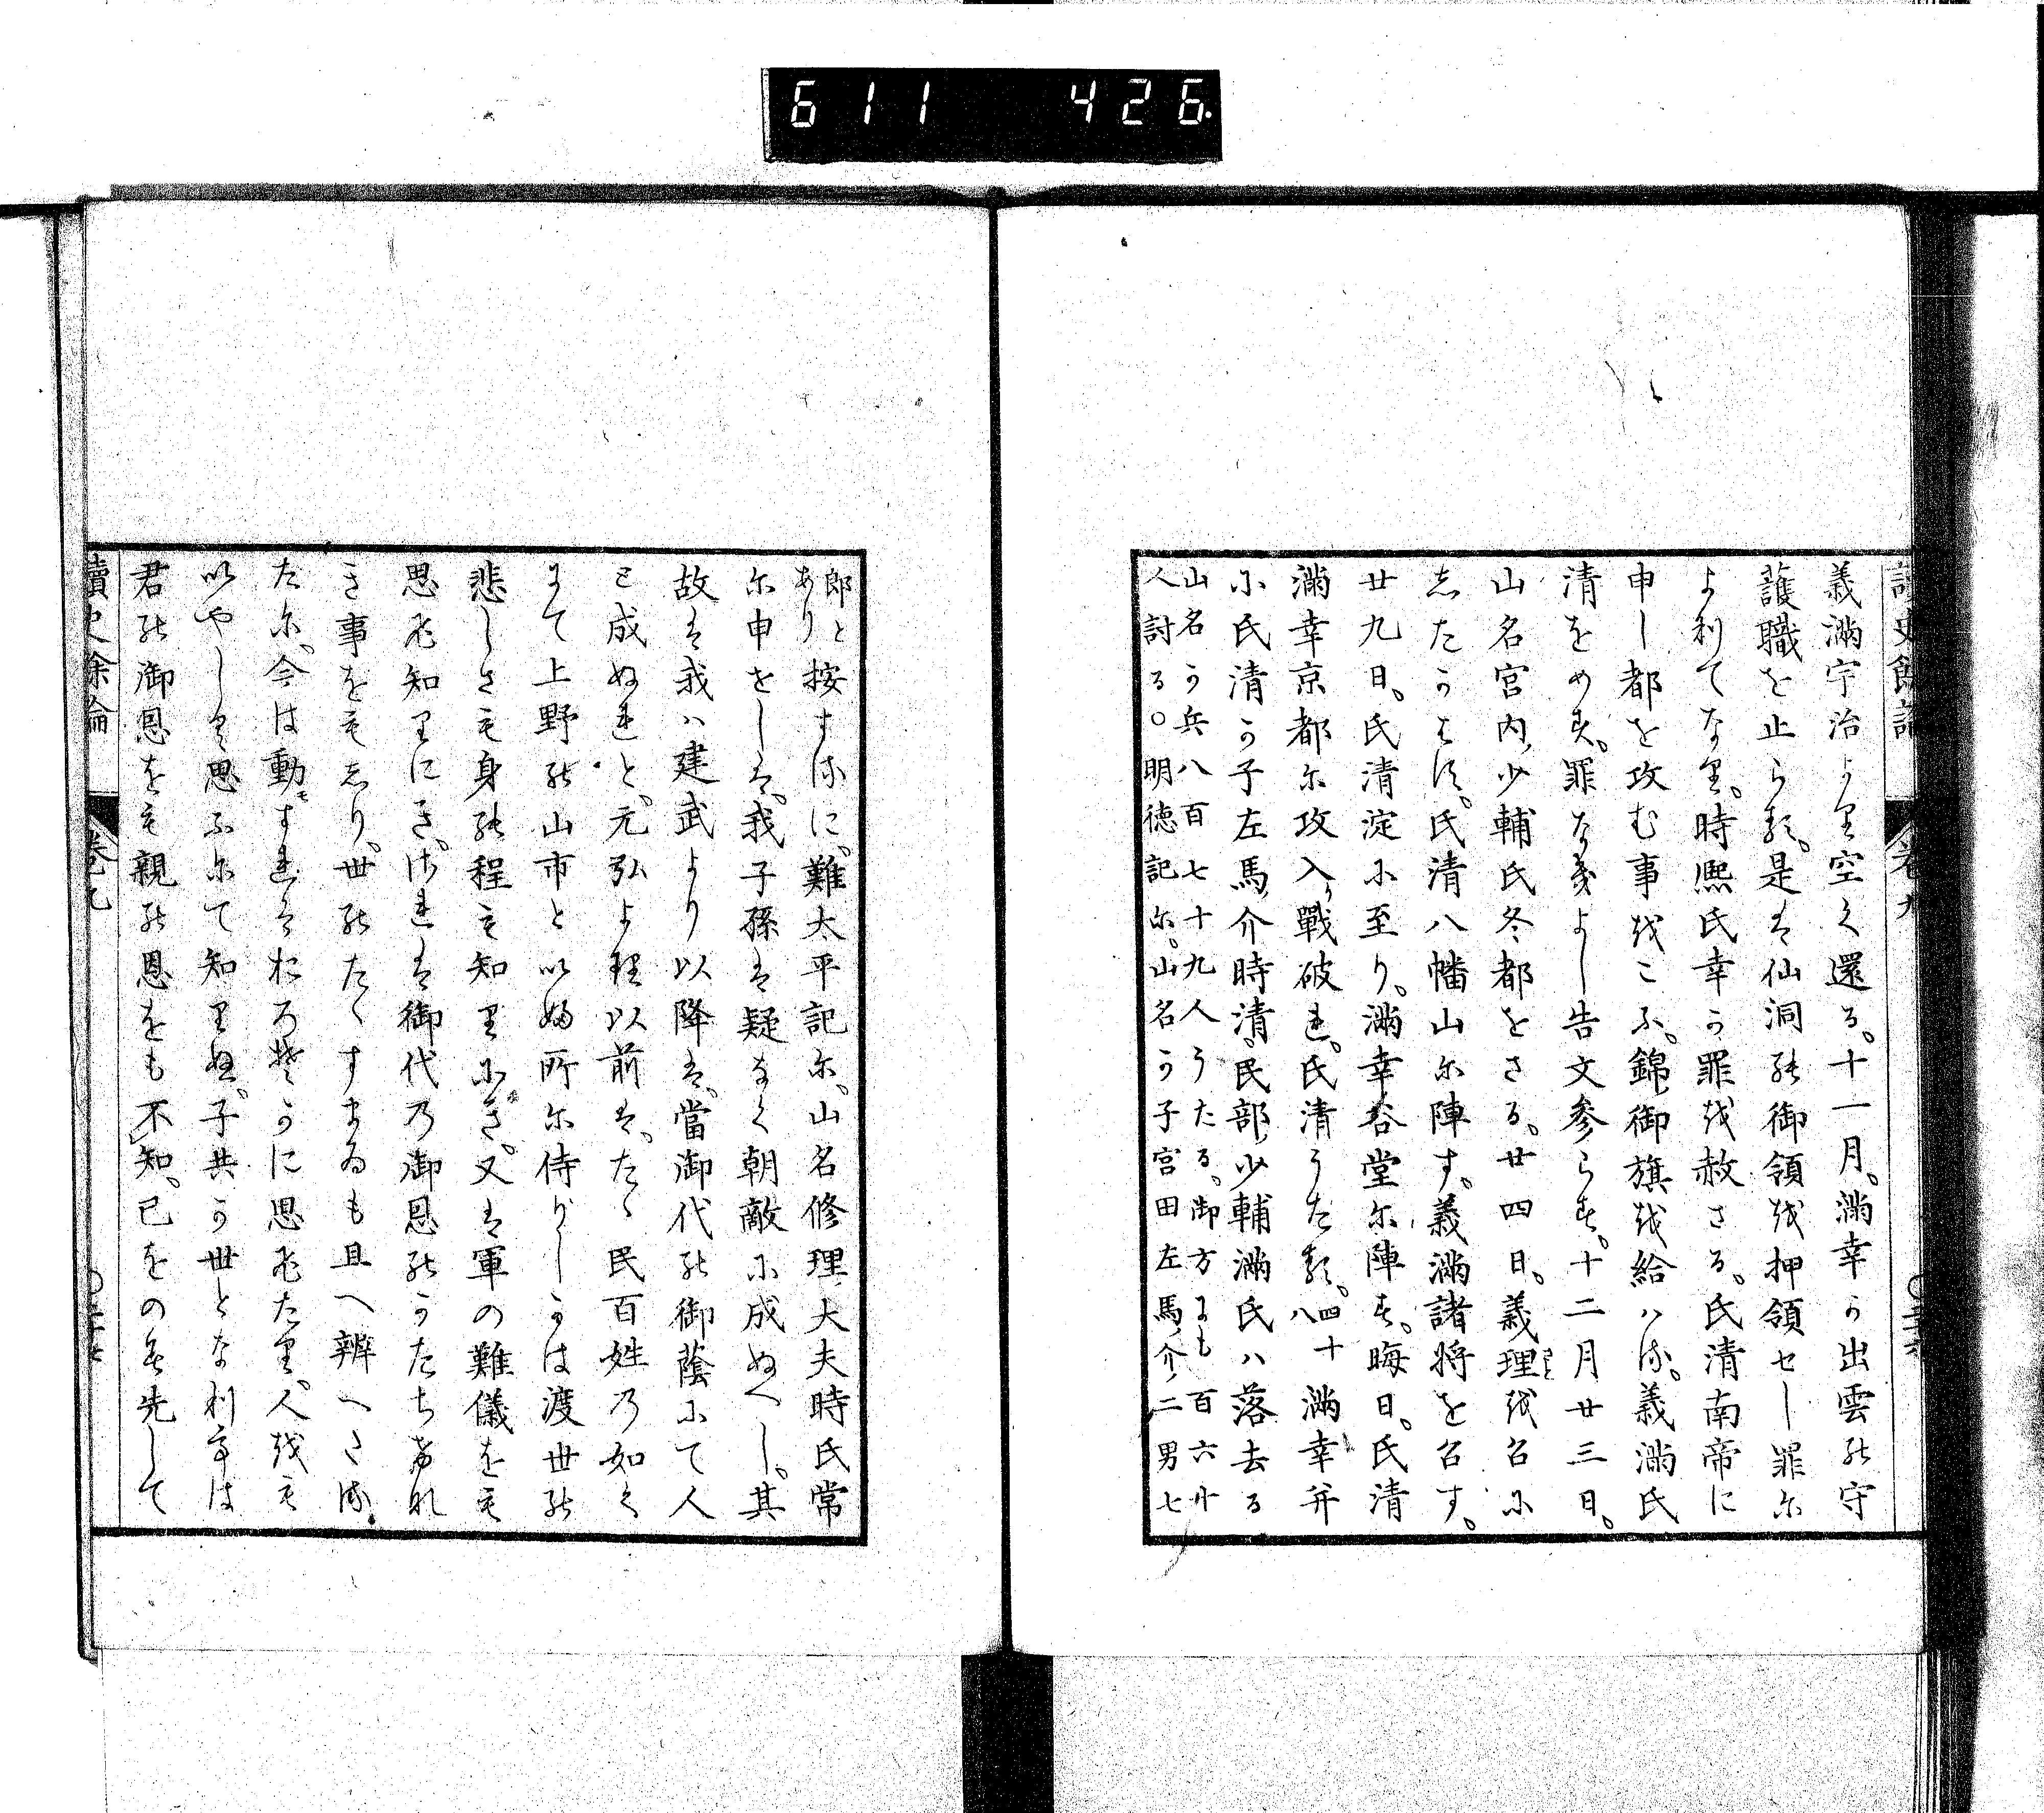 6 1 1 4 2 6.
義滿宇治より空く還る。十一月。滿幸か出雲の守
護職を止らる。是は仙洞の御領を押領セし罪に
よりてなり。時熙氏幸か罪を赦さる。氏清南帝に
申し都を攻む事をこふ。錦御旗を給ハる。義滿氏
清をめす。罪なきよし告文参らす。十二月廿三日。
山名宮内少輔氏冬都をさる。廿四日。義理を召に
したかはす。氏清八幡山に陣す。義滿諸將を召す。
廿九日。氏清淀に至り。滿幸谷堂に陣す。晦日。氏清
滿幸京都に攻入。戰破れ。氏清うたる。四十八滿幸并
に氏清か子左馬介時清。民部少輔滿氏ハ落去る
山名か兵八百七十九人うたる。御方にも百六十
人討る○明徳記に。山名か子宮田左馬介二男七
郎と
あり按するに。難太平記に。山名修理大夫時氏常
に申をしは。我子孫は疑なく朝敵に成ぬへし。其
故は我ハ建武より以降は。當御代の御蔭にて人
と成ぬれと。元弘より以前は。たゝ民百姓の如く
にて上野の山市といふ所に侍りしかは渡世の
悲しさも身の程も知りにき。又は軍の難儀をも
思ひ知りにき。されは御代の御恩のかたちけな
き事をもしり。世のたゝすまゐも且へ辨へさる
たに。今は動すれはおろそかに思ひたり。人をも
いやしく思ふにて知りぬ。子共か世となり事は
君の御恩をも親の恩をも不知。己をのみ先して
讀史餘論 卷九